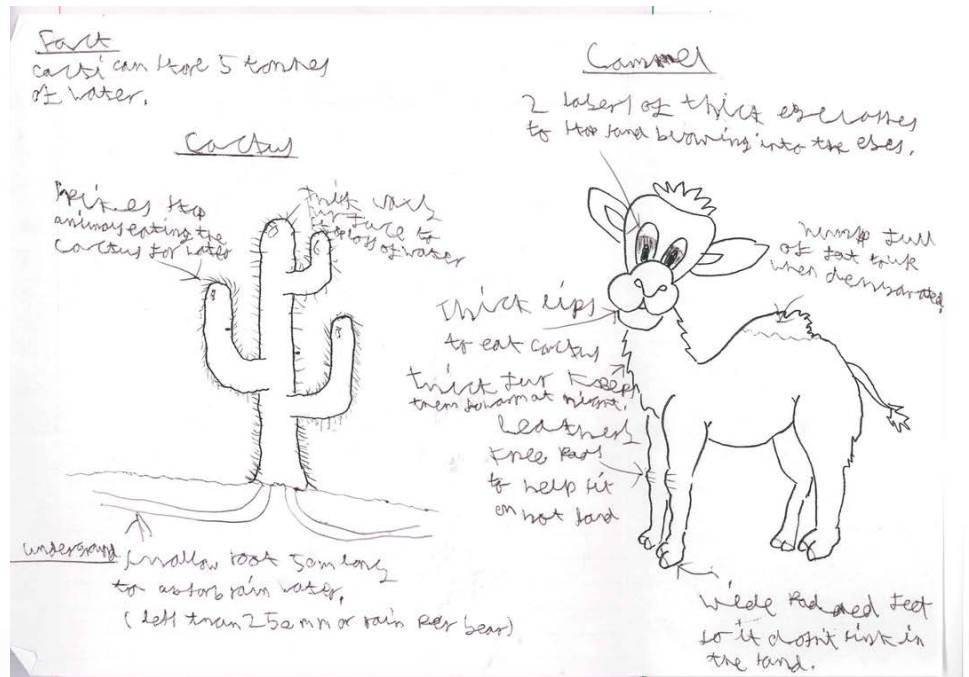 Fact
cacti can store 5 tonnes
of water.
Cactus
spikes stop
animals eating the
cactus for water
thick waxy
surface to
stop loss of water
underground
shallow root 5cm long
to absorb rain water.
(less than 250mm or rain per year)
Cammel
2 layers of thick eyelashes
to stop sand blowing into the eyes.
hump full
of fat
when
thick lips
to eat cactus
thick fur keeps
them warm at night.
Leathery
knee pads
to help sit
on hot sand
wide padded feet
so it dosn't sink in
the sand.